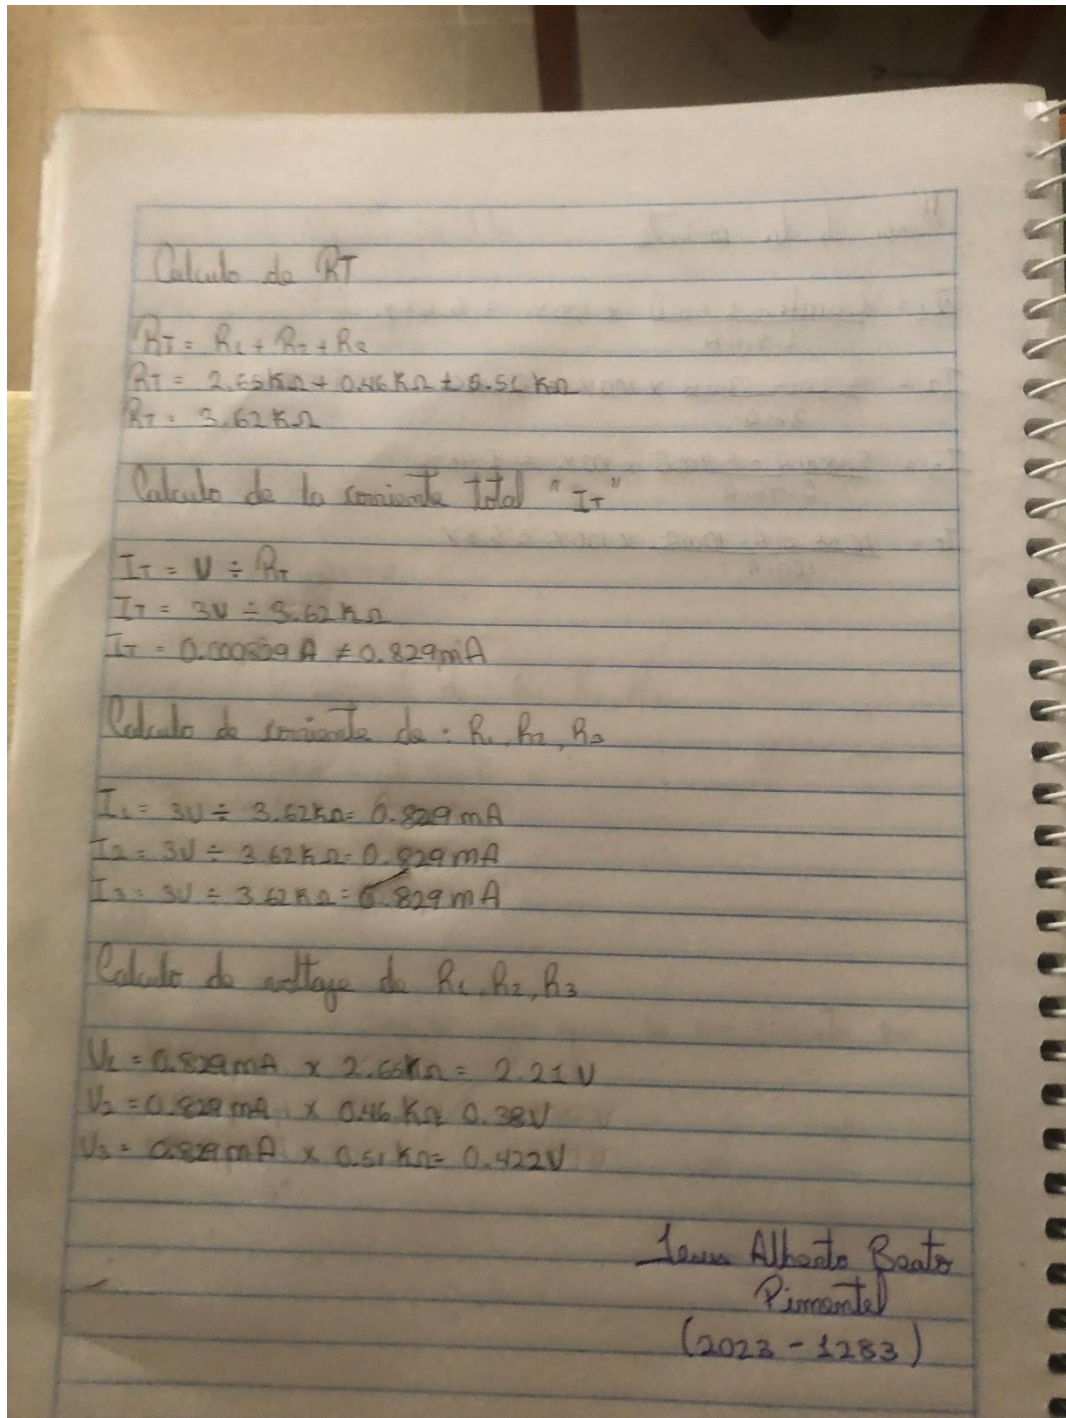 Calculo de RT
RT = R1 + R2 + R3
RT = 2.65KΩ + 0.46KΩ + 0.51 KΩ
RT = 3.62KΩ
Calculo de la corriente total "IT"
IT = V ÷ RT
IT = 3V ÷ 3.62KΩ
IT = 0.000829 A ≠ 0.829mA
Calculo de corriente de: R1, R2, R3
I1 = 3V ÷ 3.62KΩ= 0.829mA
I2 = 3V ÷ 3.62KΩ= 0.829mA
I3 = 3V ÷ 3.62KΩ= 0.829mA
Calculo de voltaje de R1, R2, R3
V1 = 0.829mA x 2.65KΩ = 2.21V
V2 = 0.829mA x 0.46KΩ 0.38V
V3 = 0.829mA x 0.51KΩ= 0.422V
Jesus Alberto Beato
Pimentel
(2023-1283)